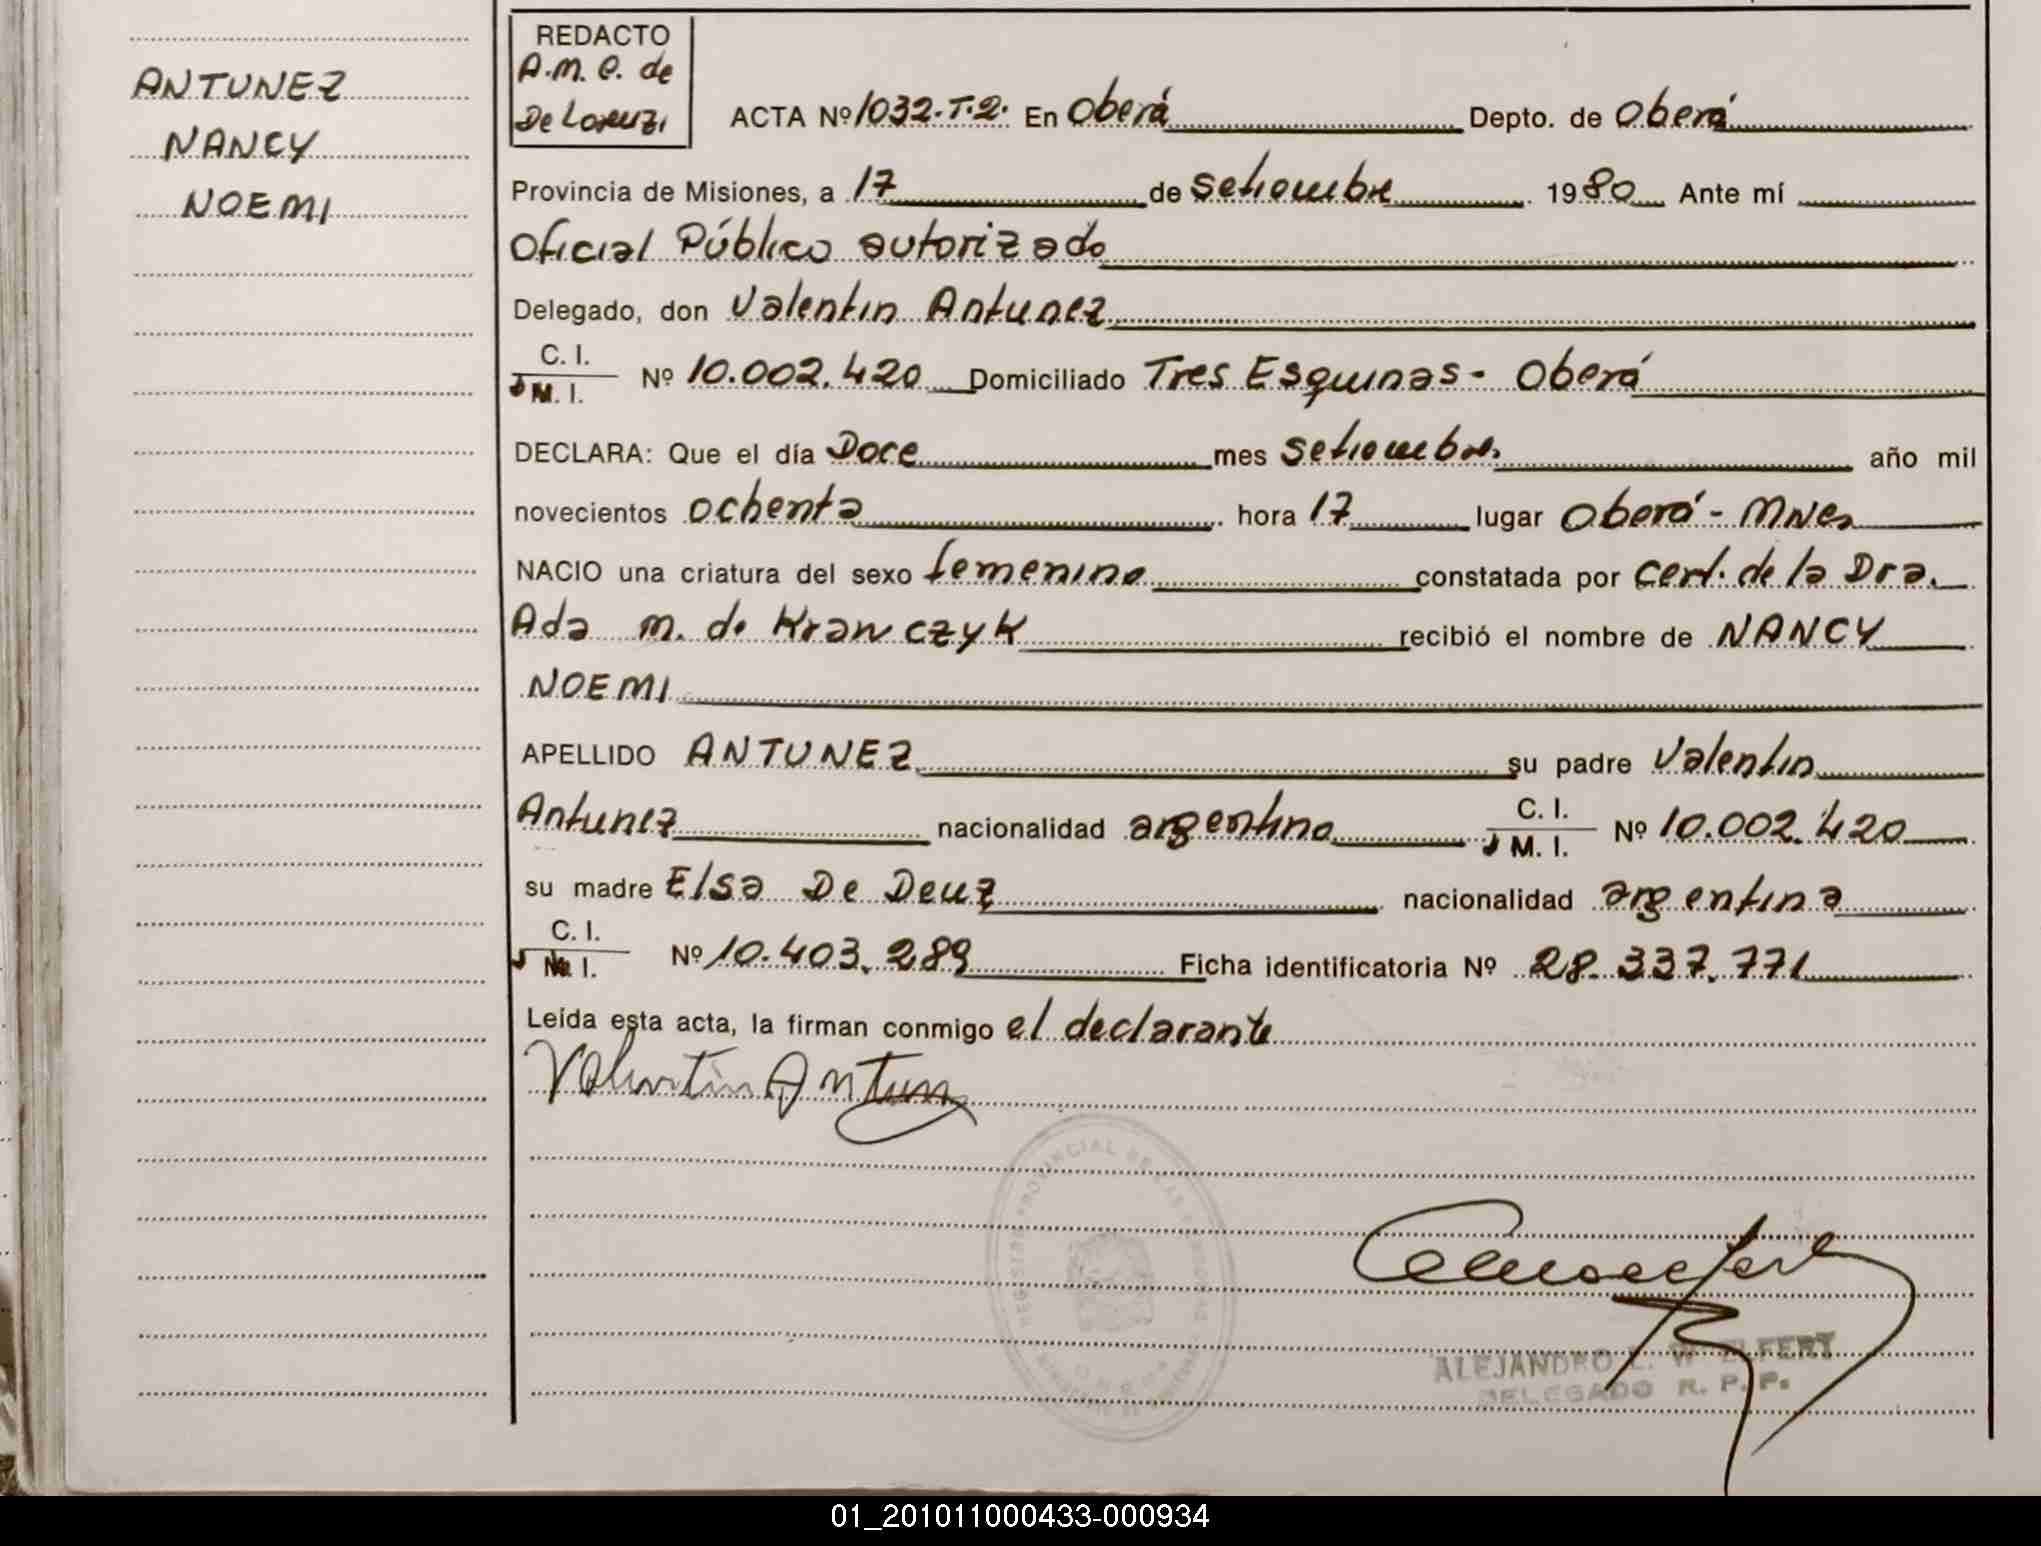 ANTUNEZ
NANCY
NOEMI
REDACTO
A.M.C. de
De Lorenzi
ACTA Nº 1032.T.2. En Oberá Depto. de Oberá
Provincia de Misiones, a 17 de setiembre 1980 Ante mí
Oficial Público autorizado
Delegado, don Valentin Antunez
C. I.
M. I. Nº 10.002.420 Domiciliado Tres Esquinas - Oberá
DECLARA: Que el día Doce mes setiembre año mil
novecientos ochenta hora 17 lugar Oberá - Mnes
NACIO una criatura del sexo femenino constatada por Cert. de la Dra.
Ada M. de Krawczyk recibió el nombre de NANCY
NOEMI
APELLIDO ANTUNEZ su padre Valentin
Antunez nacionalidad argentino C. I. M. I. Nº 10.002.420
su madre Elsa De Deuz nacionalidad argentina
C. I.
M. I. Nº 10.403.289 Ficha identificatoria Nº 28.337.771
Leída esta acta, la firman conmigo el declarante
Valentin Antun
REGISTRO PROVINCIAL DE LAS PERSONAS
ALEJANDRO L. W ELFERT
DELEGADO R. P. P.
01_201011000433-000934